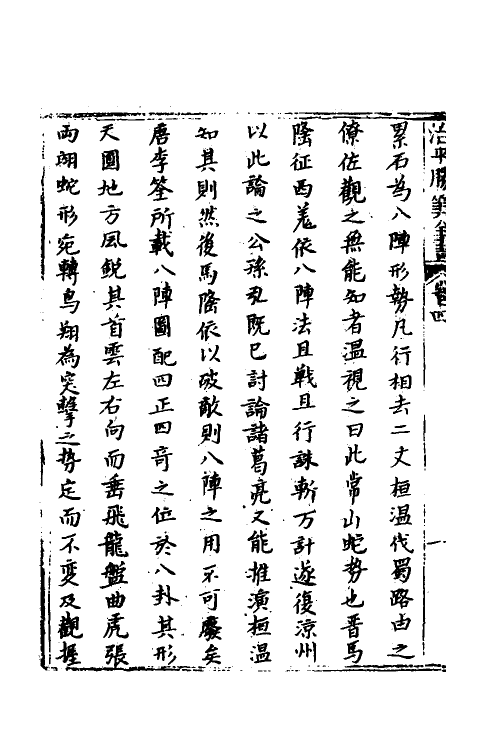 累石為八陣形勢凡行相去二丈桓温伐蜀路由之
僚佐觀之無能知者温視之曰此常山蛇勢也晋馬
隆征西羗依八陣法且戰且行誅斬万計遂復凉州
以此論之公孫𢎞既已討論諸葛亮又能推演桓温
知其則然後馬隆依以破敵則八陣之用不可廢矣
唐李筌所載八陣圖配四正四奇之位於八卦其形
天圓地方風銳其首雲左右向而垂飛龍盤曲虎張
両翅蛇形宛轉鳥翔為突擊之势定而不变及觀握